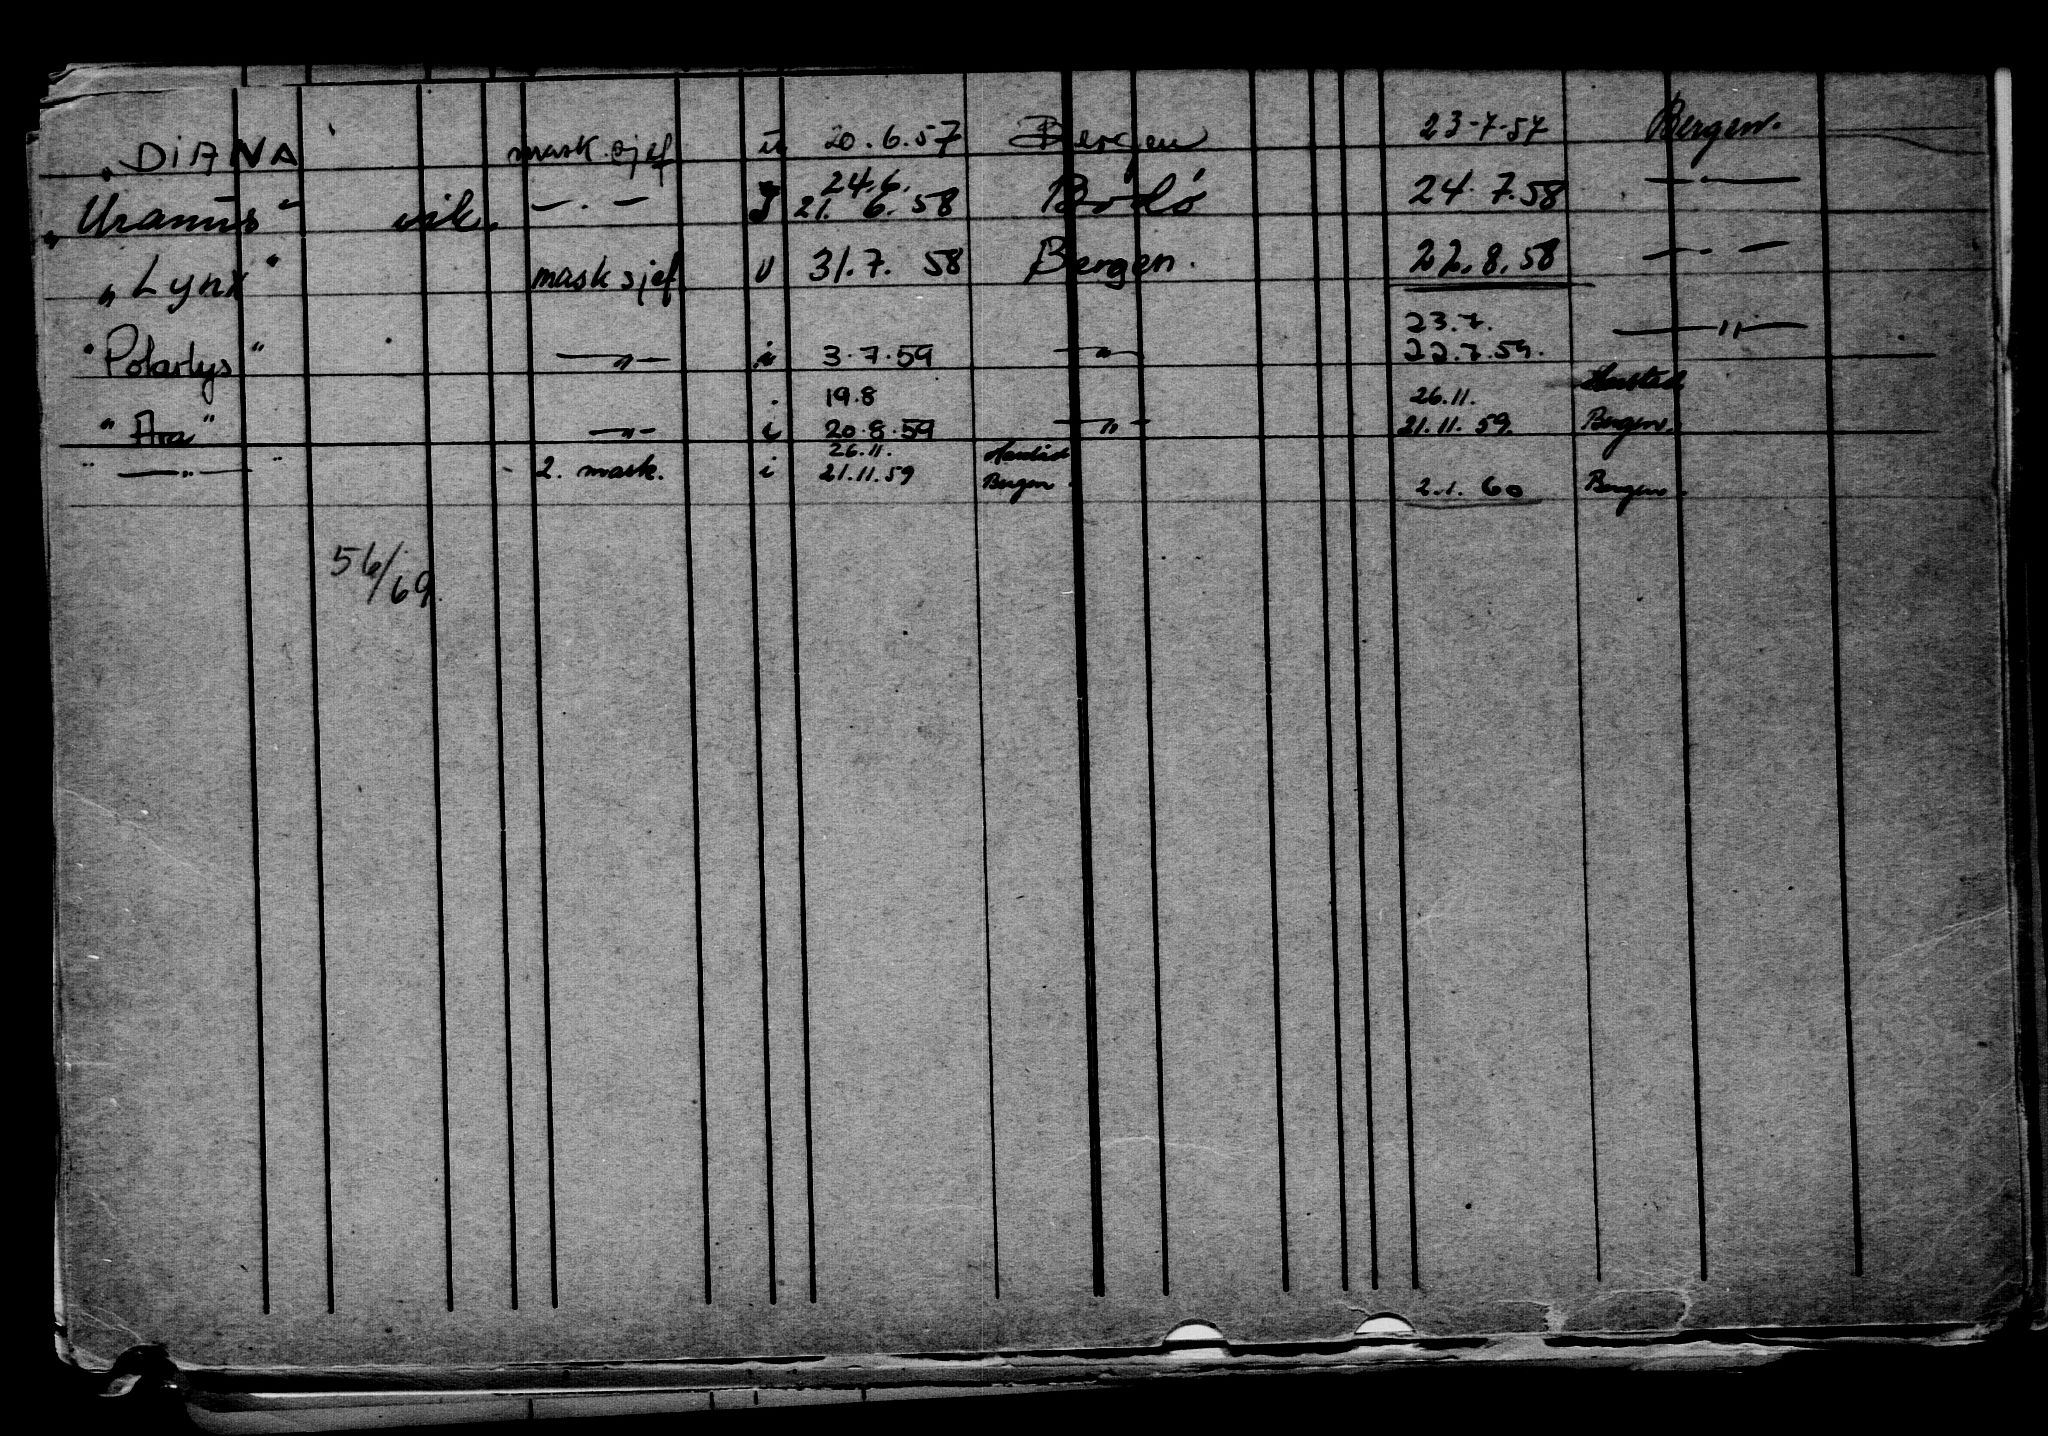 „DIANA mask.sjef u 20.6.57 Bergen 23-7-57 Bergen.
24.6.
„Uranus" vik. — . — 21. 6. 58 Bodó 24.7.58 — . —
„Lynx" mask sjef u 31.7. 58 Bergen. 22.8.58 — . —
23.7.
"Polarlys" —„— i 3.7.59 —„— 22.7.59. —"—
19.8 26.11.
"Ara" —„— i 20.8.59 —„— 21.11.59. Bergen.
26.11.
" —„— " 2. mask. i 21.11.59 Bergen 2.1.60 Bergen.
56/69.